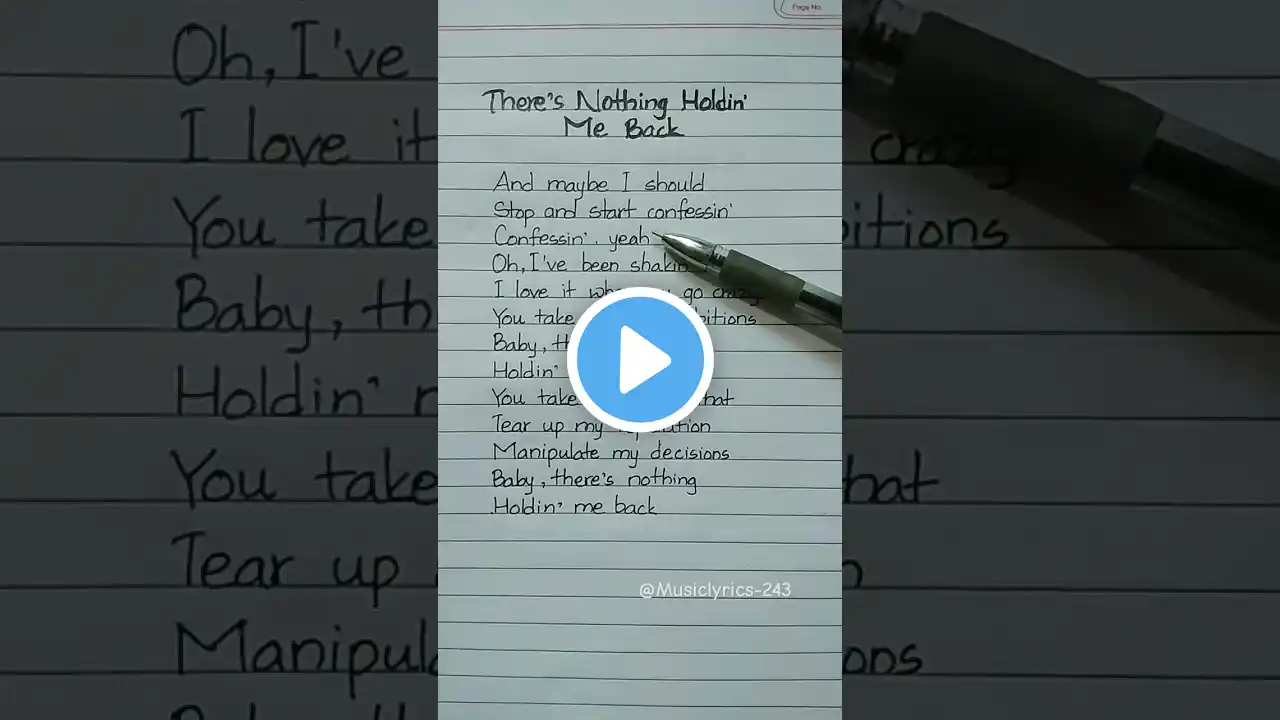 Page No.
There's Nothing Holdin'
Me Back
And maybe I should
Stop and start confessin'
Confessin', yeah
Oh, I've been
I love it go crazy
You take
Baby,
Holdin'
You take
Tear up my
Manipulate my decisions
Baby, there's nothing
Holdin' me back
@Musiclyrics-243